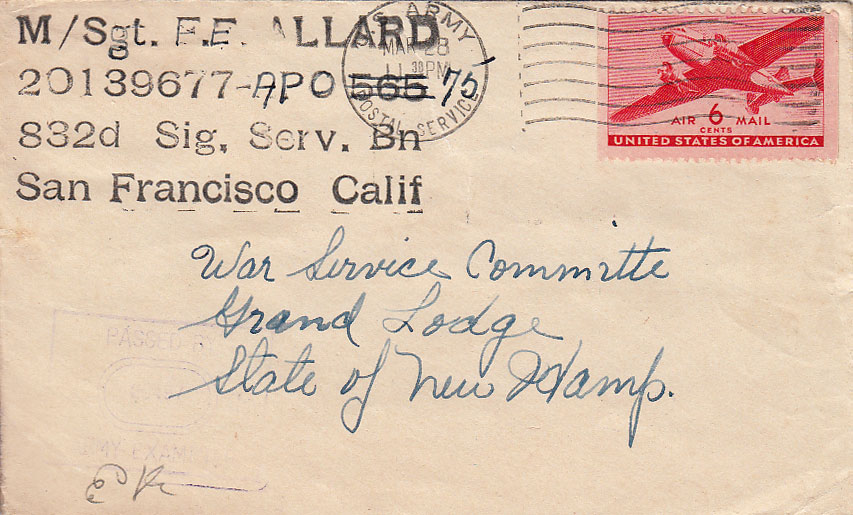 M/Sgt. F.E. ALLARD
20139677-APO 565 75
832d Sig. Serv. Bn
San Francisco Calif
U.S. ARMY
MAR 28
11 30PM
POSTAL SERVICE
AIR 6 MAIL
CENTS
UNITED STATES OF AMERICA
War Service Committe
Grand Lodge
State of New Hamp.
PASSED BY
ARMY EXAMINER